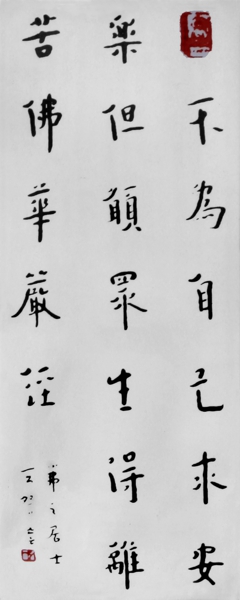 不為自己求安
樂但願眾生得離
苦佛華嚴經
居士